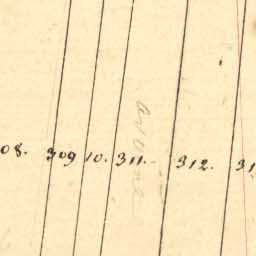 08. 309 10. 311. 312. 31